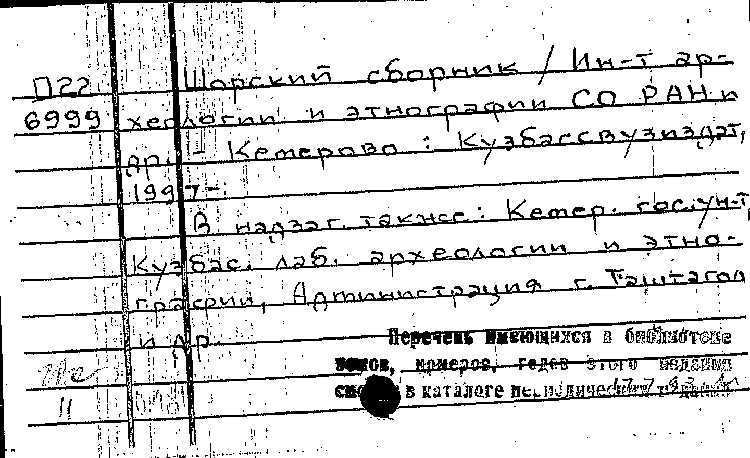 П22 Шорский сборник / Ин-т ар-
6999 хеологии и этнографии СО РАН и
др. - Кемерово : Кузбассвузиздат,
1997-
В надзаг. также: Кемер. гос. ун-т,
Кузбас. лаб. археологии и этно-
графии, Администрация г. Таштагол
и др.
Перечень имеющихся в библиотеке
томов, номеров, годов этого издания
в каталоге
11